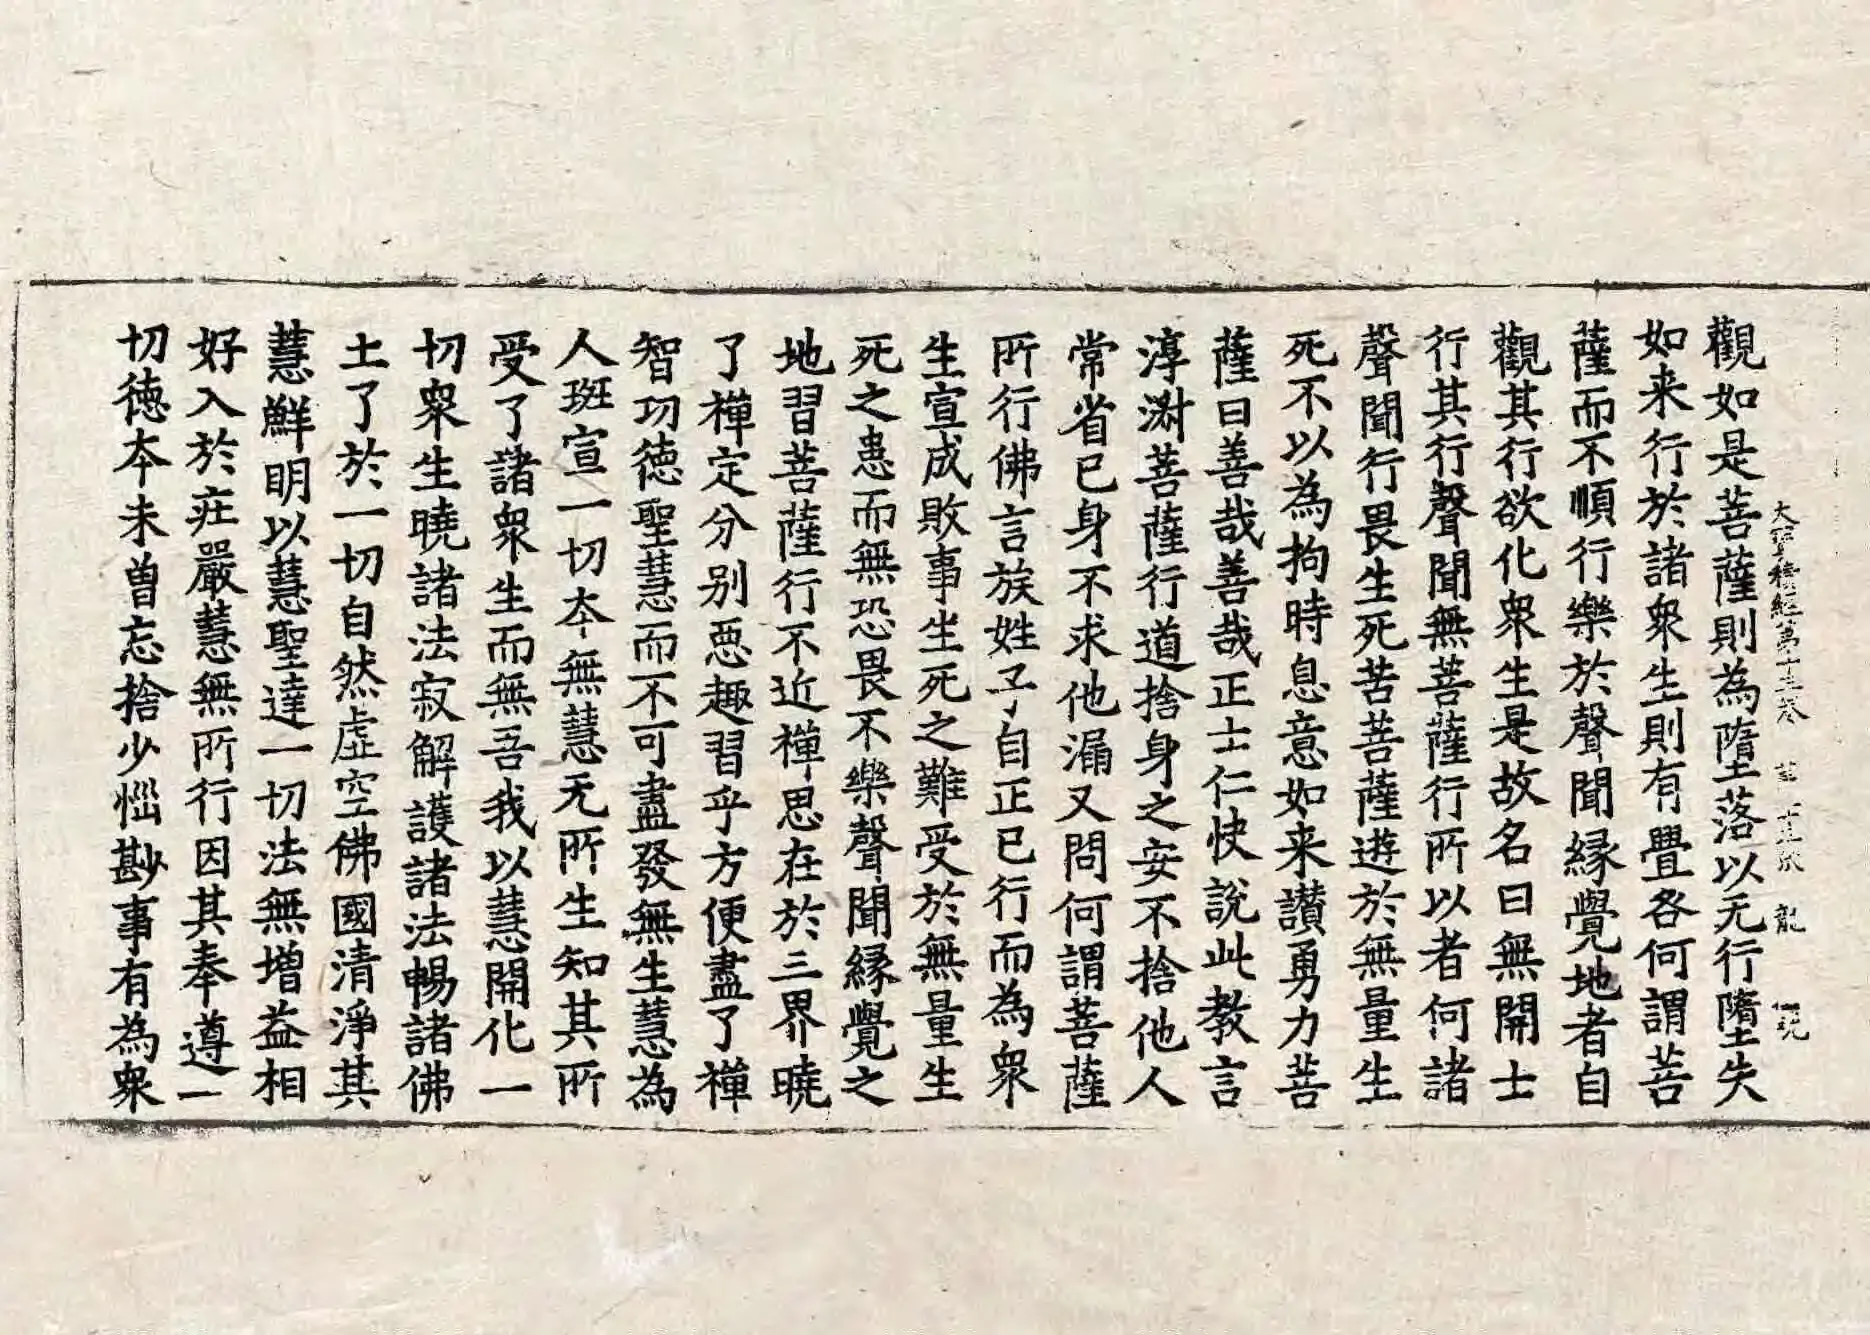 觀如是菩薩則為墮落以无行墮失
如来行於諸衆生則有疊各何謂菩
薩而不順行樂於聲聞縁覺地者自
觀其行欲化衆生是故名曰無開士
行其行聲聞無菩薩行所以者何諸
聲聞行畏生死苦菩薩遊於無量生
死不以為拘時息意如来讃勇力菩
薩曰善哉善哉正士仁快說此教言
淳淑菩薩行道捨身之安不捨他人
常省已身不求他漏又問何謂菩薩
所行佛言族姓子自正已行而為衆
生宣成敗事生死之難受於無量生
死之患而無恐畏不樂聲聞縁覺之
地習菩薩行不近禅思在於三界曉
了禅定分别惡趣習乎方便盡了禅
智功徳聖慧而不可盡發無生慧為
人班宣一切夲無慧无所生知其所
受了諸衆生而無吾我以慧開化一
切衆生曉諸法寂解護諸法暢諸佛
土了於一切自然虛空佛國清淨其
慧鮮明以慧聖達一切法無增益相
好入於庄嚴慧無所行因其奉遵一
切徳夲未曽忘捨少惱尠事有為衆
大寶積經第十三卷 第十三張 龍